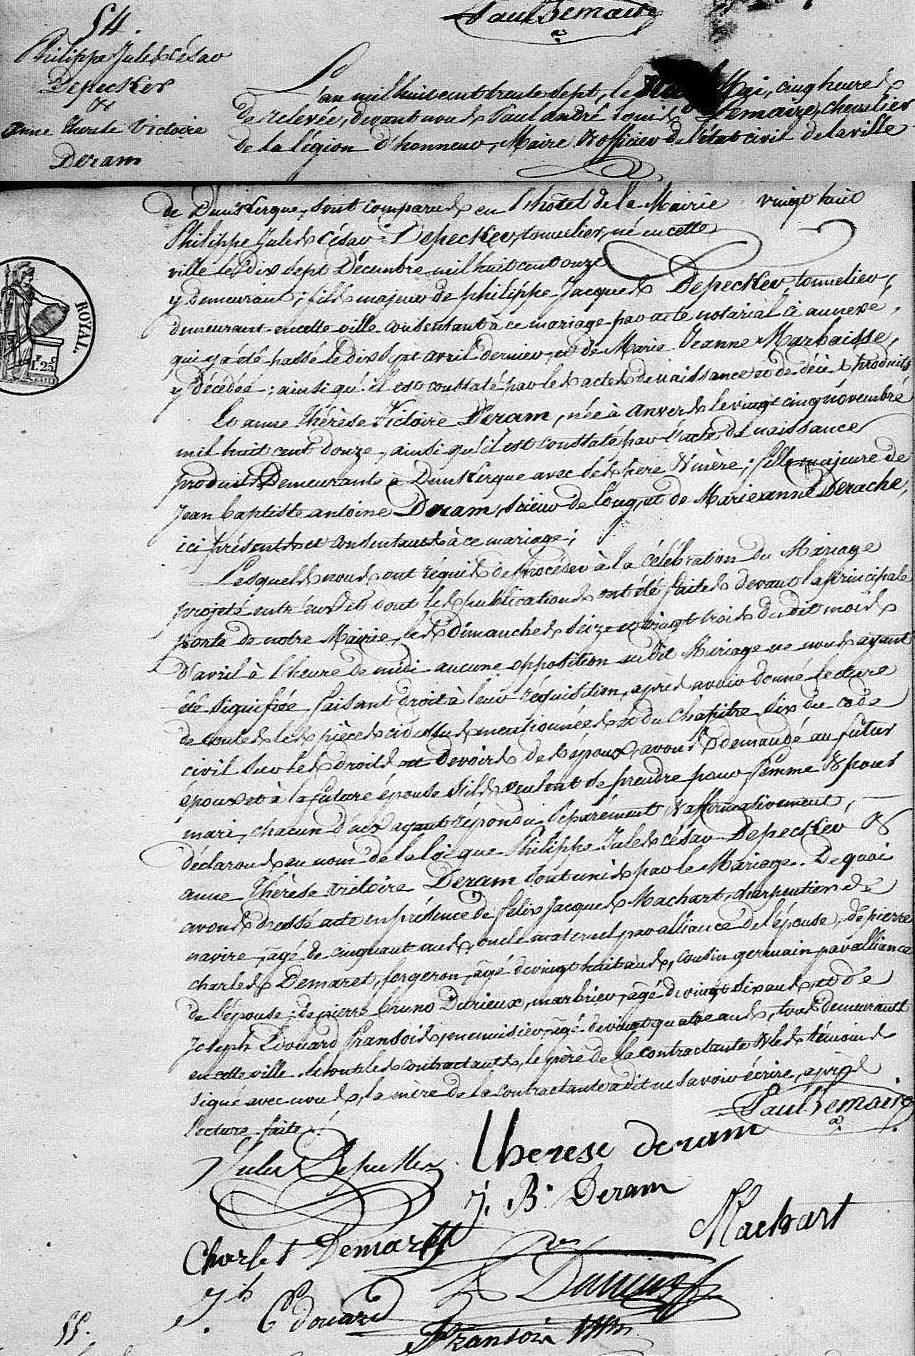 Paul Lemaire
54.
Philippe Jules César
Depecker
&
anne Thérèse Victoire
Deram
L'an mil huit cent trente sept, le Mai, cinq heures
de relevée, devant nous Paul andré louis Lemaire, chevalier
de la légion d'honneur, Maire & officier de l'état civil de la ville
de Dunkerque, sont comparus en l'hôtel de la Mairie vingt huit
Philippe Jules César Depecker, tonnelier, né en cette
ville le dix sept Décembre mil huit cent onze
y demeurant, fils majeur de philippe Jacques Depecker tonnelier,
demeurant en cette ville consentant à ce mariage par acte notarial ci annexé,
qui y a été passé le dix sept avril dernier, et de Marie Jeanne Marbaisse,
y décédée; ainsi qu'il est constaté par les actes de naissance et de décès produits
Et anne Thérèse Victoire Deram, née à anvers le vingt cinq novembre
mil huit cent douze, ainsi qu'il est constaté par l'acte de naissance
produit, Demeurante à Dunkerque avec ses père & mère; fille majeure de
Jean baptiste antoine Deram, scieur de long, et de Marie anne Derache,
ici présents et consentants à ce mariage;
Lesquels nous ont requis de procéder à la célébration du Mariage
projeté entr'eux et dont les publications ont été faites devant la principale
porte de notre Mairie, les Dimanches seize et vingt trois du dit mois
d'avril à l'heure de midi aucune opposition au dit Mariage ne nous ayant
été signifiée faisant droit à leur réquisition, après avoir donné lecture
de toutes les pièces ci dessus mentionnées et du chapitre six du code
civil sur les droits et devoirs des époux, avons demandé au futur
époux et à la future épouse s'ils veulent se prendre pour femme & pour
mari, chacun d'eux ayant répondu séparément & affirmativement,
déclarons au nom de la loi que Philippe Jules César Depecker &
anne Thérèse Victoire Deram sont unis par le Mariage. De quoi
avons dressé acte en présence de felix Jacques Machart, charpentier de
navire, âgé de cinquante ans, oncle maternel par alliance de l'épouse, de pierre
charles Demaret, forgeron, âgé de vingt huit ans, cousin germain par alliance
de l'épouse, de pierre bruno Durieux, marbrier, âgé de vingt six ans, et de
Joseph Edouard fransois, menuisier, âgé de vingt quatre ans, tous demeurants
en cette ville. les contractants, le père de la contractante & les témoins
signé avec nous, la mère de la contractante a dit ne savoir écrire, après
lecture faite.
Paul Lemaire
Jules Depecker
Therese deram
J. B. Deram
Machart
Charles Demarett
Durieux
Jh Edouard
Fransois
55.
ROYAL.
1.25